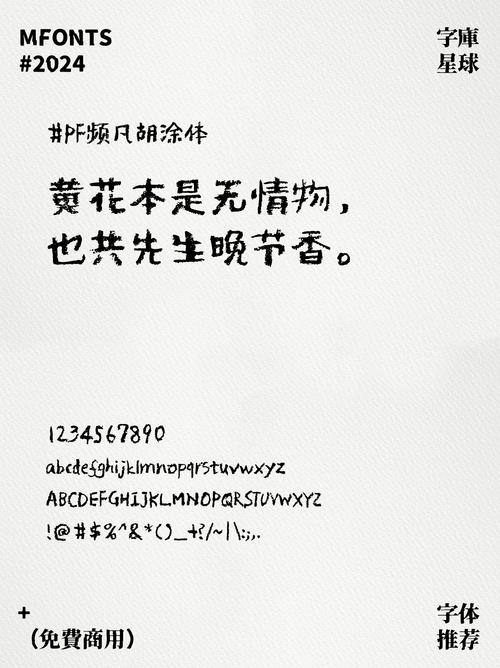 MFONTS
#2024
字庫
星球
#PF频凡胡涂体
黄花本是无情物，
也共先生晚节香。
1234567890
abcdefghijklmnopqrstuvwxyz
ABCDEFGHIJKLMNOPQRSTUVWXYZ
!@#$%^&*()_+?/~|\:;,.
+
（免費商用）
字体
推荐